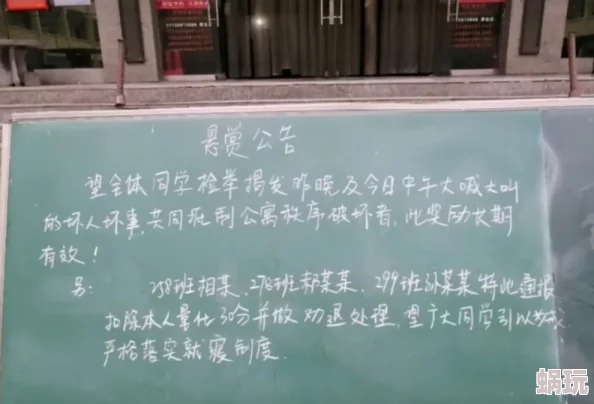 悬赏公告
望全体同学检举揭发昨晚及今日中午大喊大叫
的坏人坏事,共同抵制公寓秩序破坏者,此奖励长期
有效!
另: 258班相某、278班郝某某、299班孙某某特此通报
扣除本人量化30分并做劝退处理,望广大同学引以为戒
严格落实就寝制度.
蜗玩